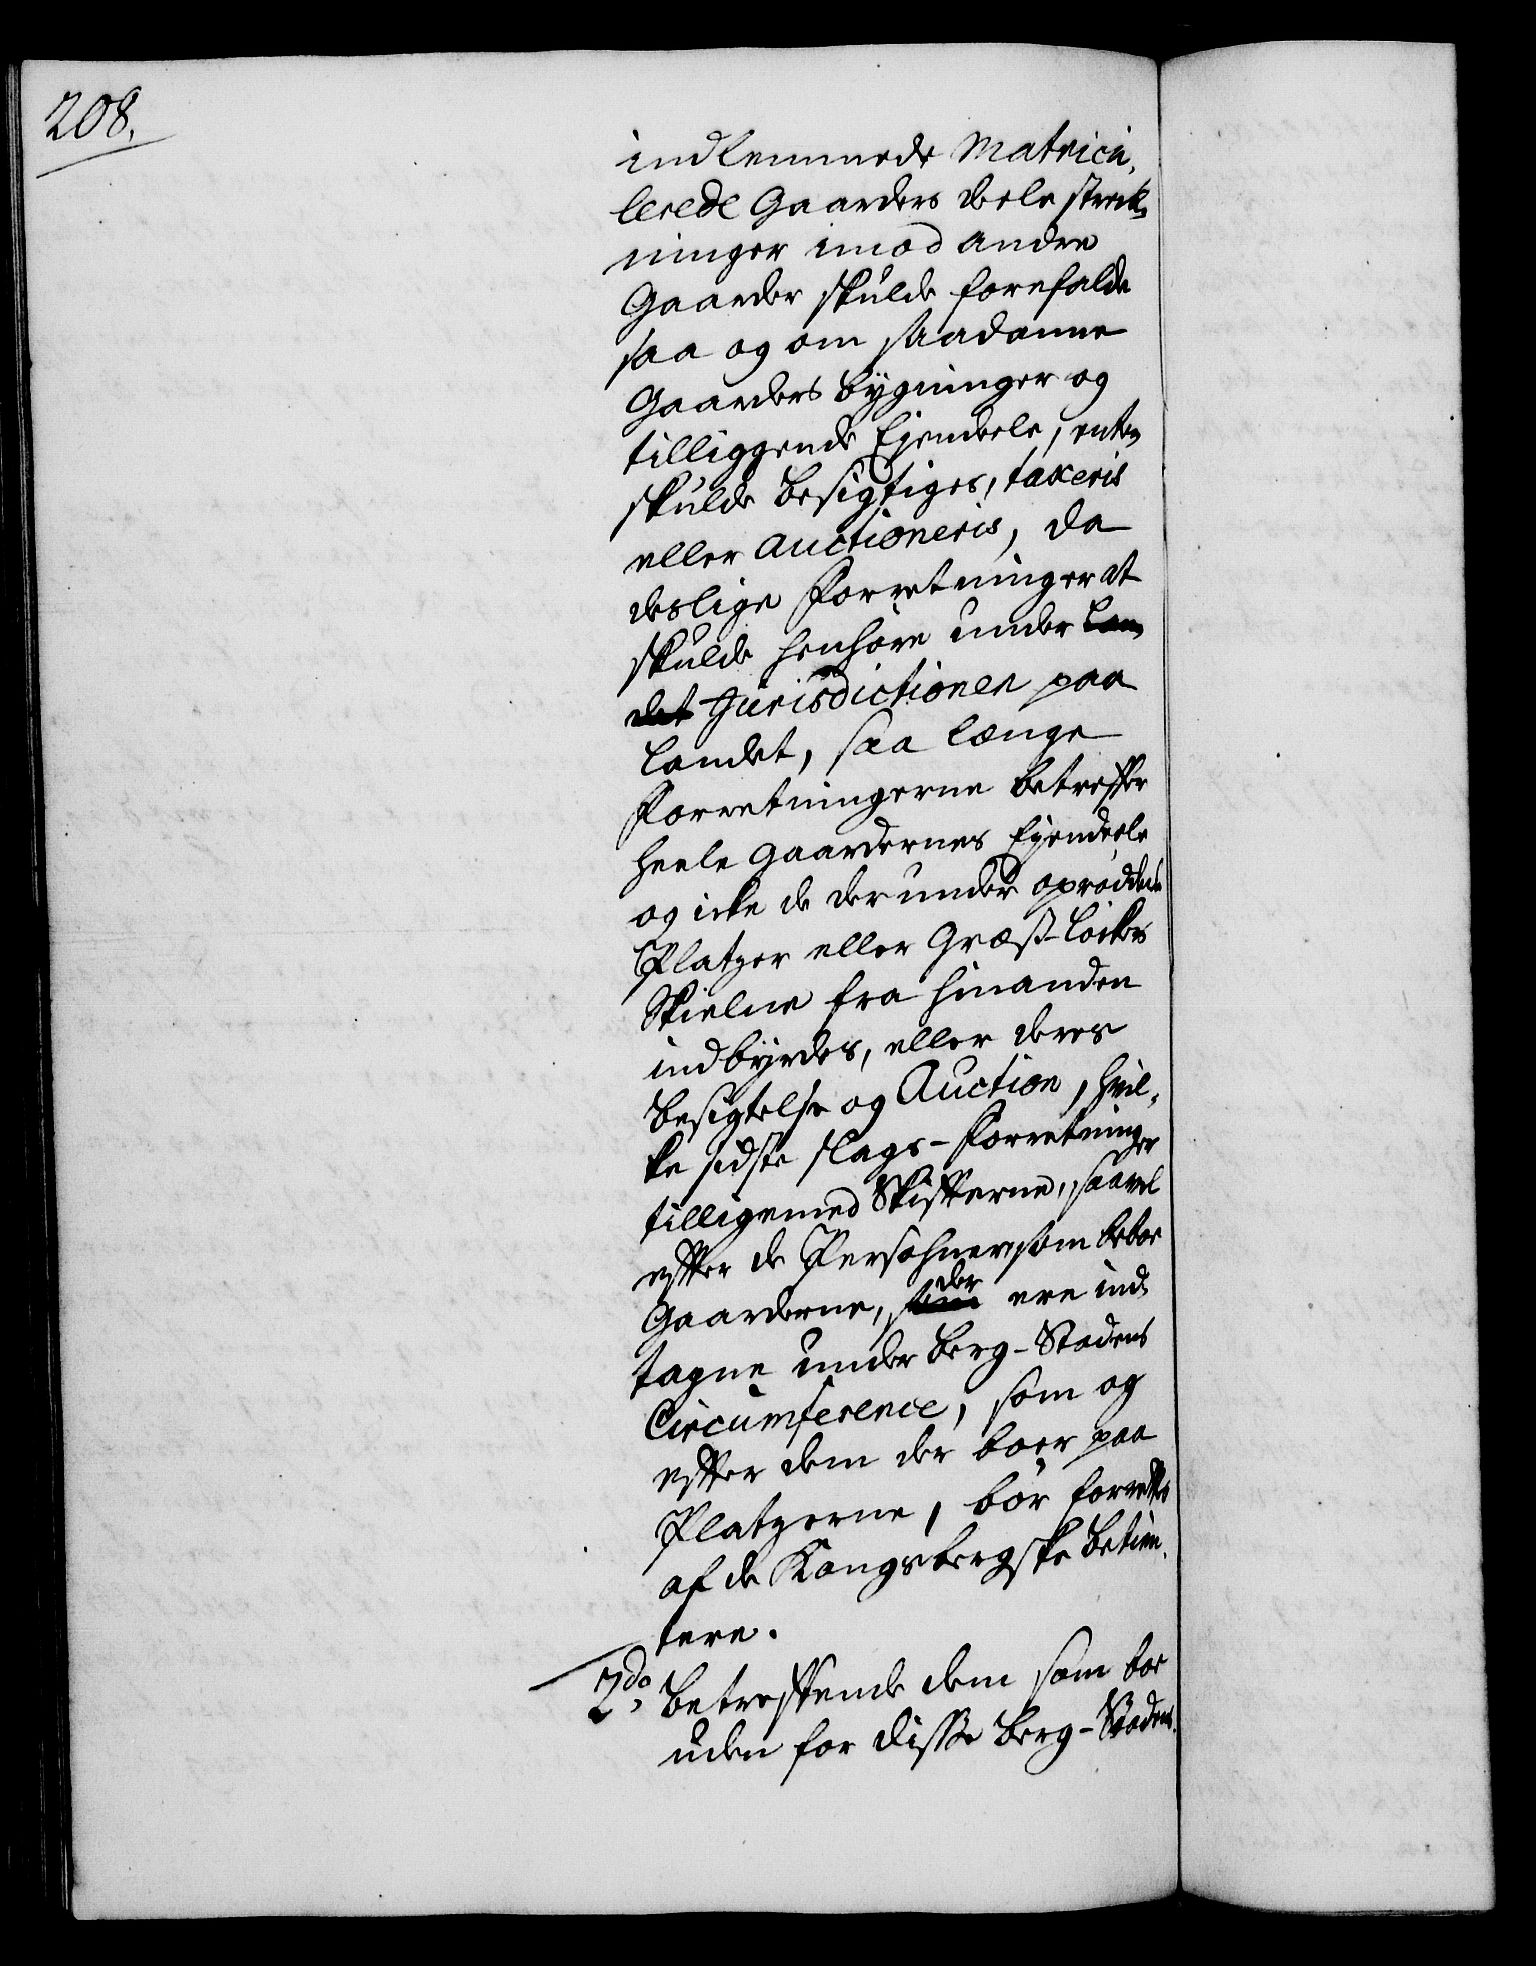 208.
indlemmede Matricu,
lerede Gaarders deele strek,
ninger imod andre
Gaarder skulde forefalde
saa og om saadanne
Gaarders bygninger og
tilliggende Ejendeele, enten
skulde besigtiges, taxeris
eller auctioneris, da
deslige Forretninger at
skulde henhøre under Lan,
det Jurisdictionen paa
Landet, saa længe
Forretningerne betreffer
heele gaardernes Ejendeele
og icke de derunder oprøddede
Platzer eller Græss-Løckers
Skielne fra hinanden
indbyrdes, eller deres
besigtelse og Auction, hvil,
ke sidste slags-Forretninger
tilligemed Skifterne, saavel
efter de Persohner, som beboe
Gaarderne, som der ere ind,
tagne under Berg-Stadens
Circumference, som og
efter dem der boer paa
Platzerne, bør forrettes
af de Kongsbergske betien,
tere.
2do, betreffende dem som boe
uden for disse Berg-Stadens